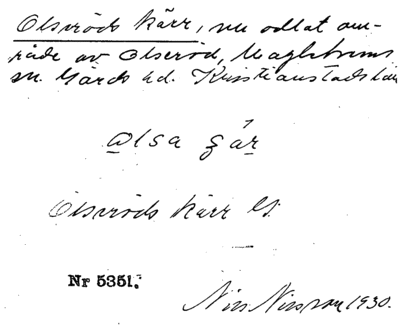 Olseröds kärr, nu odlat om-
råde av Olseröd, Maglehems
sn. Gärds hd. Kristianstads län
olsa ʒár
Olseröds kärr
Nr 5351.
Nils Nilsson 1930.